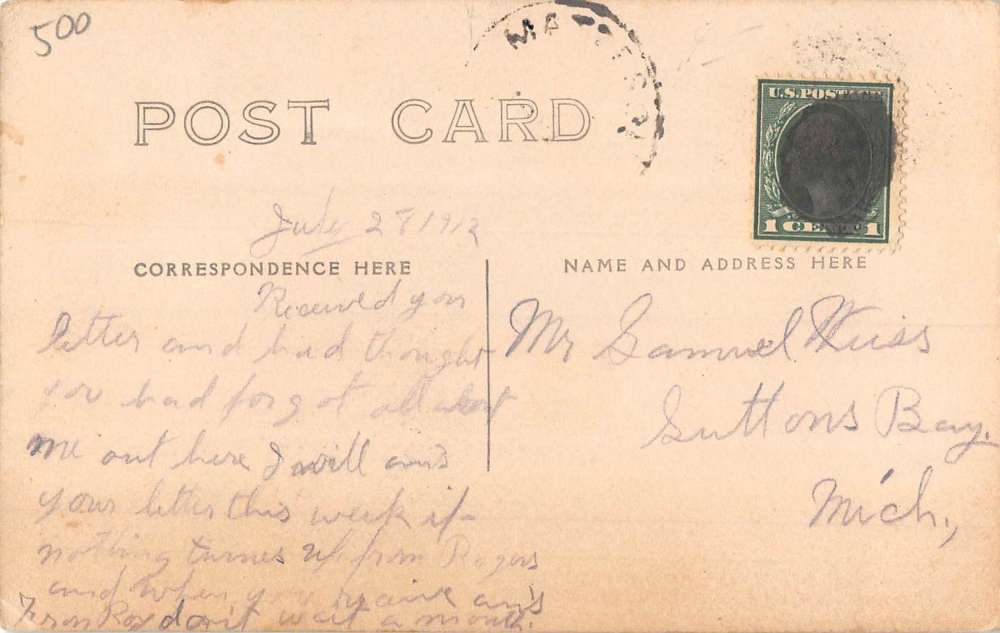 500
POST CARD
U.S. POSTAGE
1 CENT 1
July 28 1912
CORRESPONDENCE HERE
NAME AND ADDRESS HERE
Received your
letter and had thought
you had forgot all about
me out here I will ans
your letter this week if
nothing turnes up from Rogers
and when you receive ans
From Roy don't wait a month.
Mr Samuel Weiss
Suttons Bay.
Mich.,